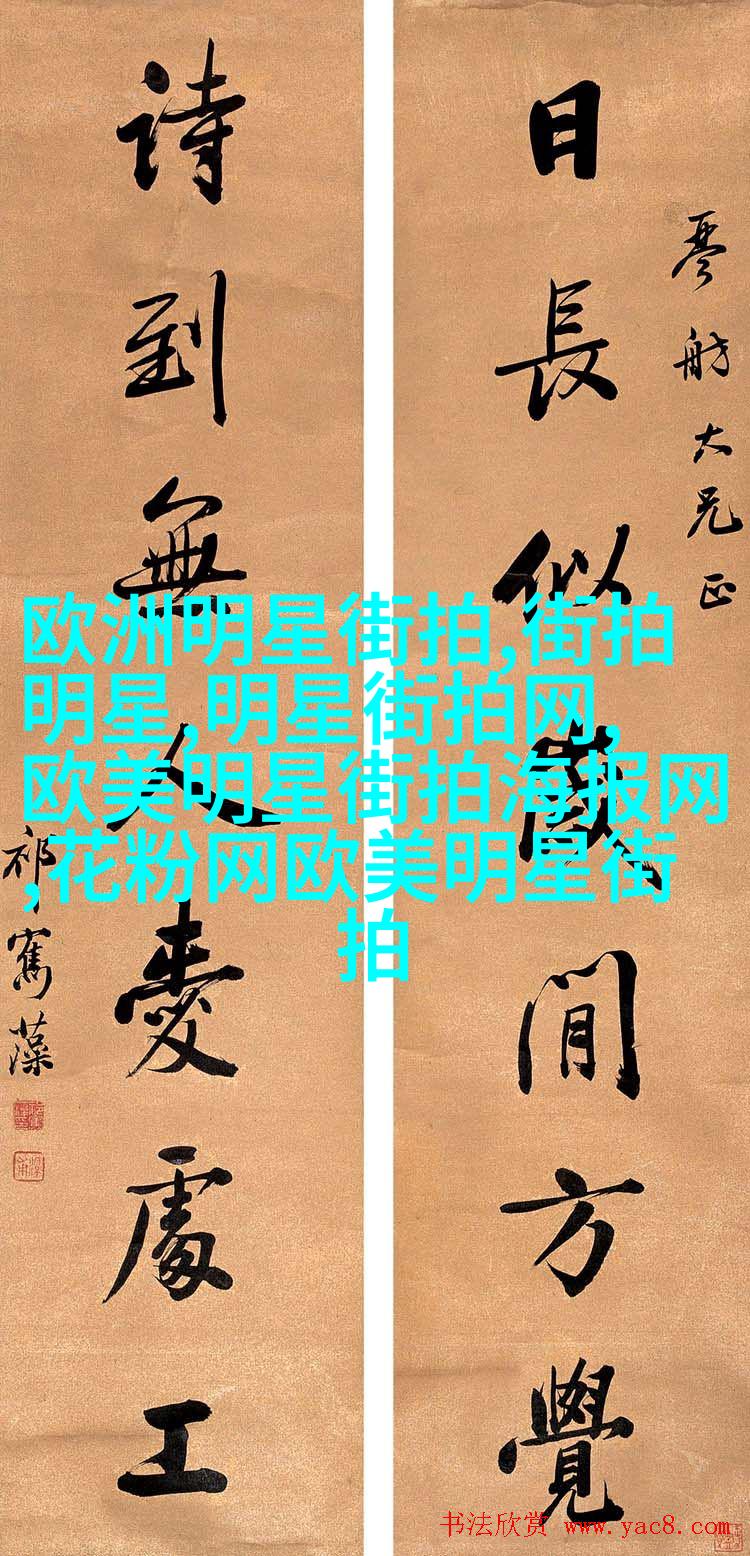 琴舫大兄正
日長似歲閒方覺
詩到無人愛處工
祁寯藻
欧洲明星街拍,街拍
明星,明星街拍网,
欧美明星街拍海报网
,花粉网欧美明星街
拍
书法欣赏 www.yac8.com